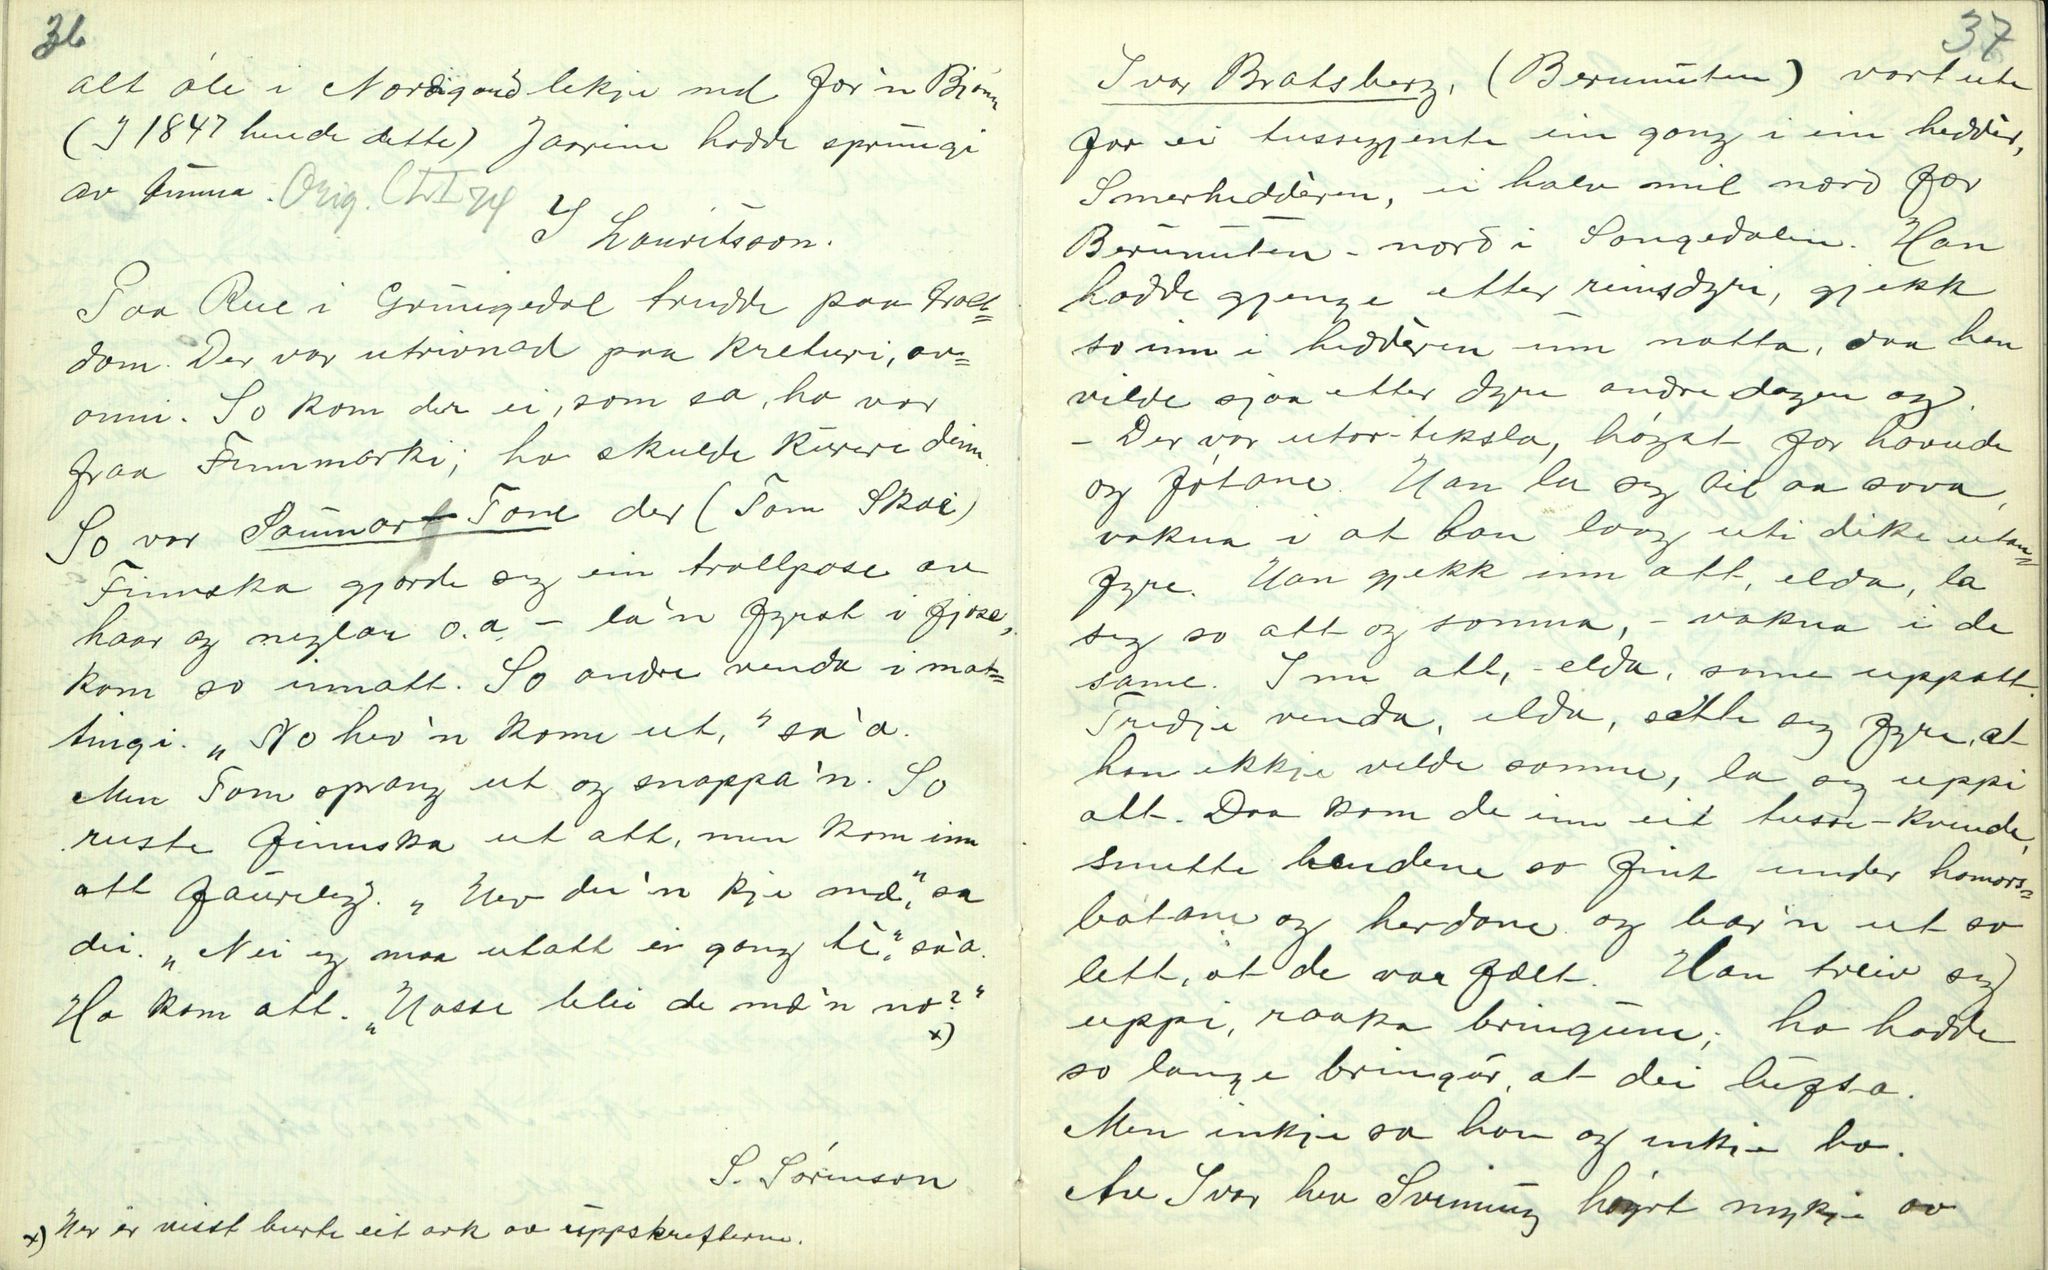 36
alt óli i Nordigard lekje md for'n Bjønn
(I 1847 hende dette) Jaorinn hadde sprungi
av tunna. Orig. CLI 74
Y Lauritsson.
Paa Rue i Grungedal trudde paa troll=
dom. Der var utrivnad paa kreturi, av=
onni. So kom der ei, som sa, ho var
fraa Finnmarki; ho skulde kurere deim.
So var Saumar-Tone der (Tone Skoi)
Finnska gjorde seg ein trollpose av
haar og neglar o.a. - la'n fyrst i fjose,
kom so innatt. So andre venda i mat=
tingi. „No hev'n kome ut," sa'a.
Men Tone sprang ut og snappa'n. So
ruste finnska ut att, men kom inn
att faureleg. „Hev dei'n kje md", sa
dei. „Nei eg maa utatt ein gong te", sa'a.
Ho kom att. „Hosse blei de md'n no?"
x)
S. Sørenson
x) Her er visst burte eit ark av uppskrifterne.
37
Ivar Bratsberg, (Berunuten) vart ute
for ei tussegjente ein gong i ein hedder,
Smerhedderen, ei halv mil nord for
Berunuten - nord i Songedalen. Han
hadde gjenge etter reinsdyri, gjekk
so inn i hedderen um natta, daa han
vilde sjaa etter dyre andre dagen og.
- Der var utor-teksla, høgst for hovude
og føtane. Han la seg til aa sova,
vakna i at han laag uti dike utan=
fyre. Han gjekk inn att, elda, la
seg so att og somna, - vakna i de
same. Inn att, - elda, same uppatt.
Tredje venda, elda, sette seg fyre, at
han ikkje vilde somne, la seg uppi
att. Daa kom de inn eit tusse-kvende,
smette hendene so fint under homors=
bótane og herdane og bar'n ut so
lett, at de var fælt. Han treiv seg
uppi, raaka bringune; ho hadde
so lange bringur, at dei lufsa.
Men inkje sa han og inkje ho.
Av Ivar hev Sveinung høyrt mykje av